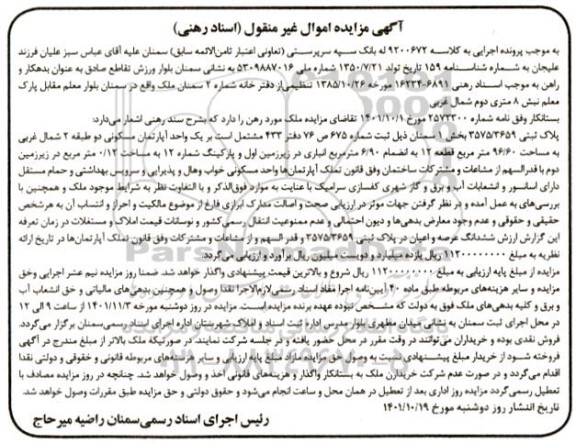 آگهی مزایده اموال غیر منقول (اسناد رهنی)
به موجب پرونده اجرایی به کلاسه ۹۲۰۰۶۷۲ له بانک سپه سرپرستی (تعاونی اعتبار ثامن‌الائمه سابق) سمنان علیه آقای عباس سبز علیان فرزند
علیجان به شماره شناسنامه ۱۵۹ تاریخ تولد ۱۳۵۰/۷/۲۱ شماره ملی ۵۳۰۹۸۸۷۰۱۶ به نشانی سمنان بلوار ورزش تقاطع صادق به عنوان بدهکار و
راهن به موجب اسناد رهنی ۶۸۹۱-۱۶۲۳۴ مورخه ۱۳۸۵/۱۰/۲۶ تنظیمی از دفتر خانه شماره ۲ سمنان ملک واقع در سمنان بلوار معلم مقابل پارک
معلم نبش ۸ متری دوم شمال غربی
بستانکار وفق نامه شماره ۲۵۷۳۳۰۰ مورخ ۱۴۰۱/۱۰/۱ تقاضای مزایده ملک مورد رهن را دارد که بشرح سند رهنی اشعار می‌دارد:
پلاک ثبتی ۳۵۷۵/۳۶۵۹ بخش ۱ سمنان ذیل ثبت شماره ۶۷۵ ص ۷۶ دفتر ۴۳۳ مشتمل است بر یک واحد آپارتمان مسکونی دو طبقه ۲ شمال غربی
به مساحت ۹۶/۶۰ متر مربع قطعه ۱۲ به انضمام ۶/۹۰ مترمربع انباری در زیرزمین اول و پارکینگ شماره ۱۲ به مساحت ۰/۱۲ متر مربع در زیرزمین
دوم با قدرالسهم از مشاعات و مشترکات ساختمان وفق قانون تملک آپارتمان‌ها واحد مسکونی خواب وهال و پذیرایی و سرویس بهداشتی و حمام مستقل
دارای آسانسور و انشعابات آب و برق و گاز شهری کفسازی سرامیک با عنایت به موارد فوق‌الذکر و با التفاوت به نظر به شرایط موجود ملک و همچنین با
بررسی‌های به عمل آمده و در نظر گرفتن جهات موثر در ارزیابی صحت و اصالت مدارک ابرازی فارغ از موضوع مالکیت و احراز و انتساب آن به هرشخص
حقیقی و حقوقی و عدم وجود معارض بدهی‌ها و دیون احتمالی و عدم ممنوعیت انتقال رسمی کشور و نوسانات قیمت املاک و مستغلات در زمان تعرفه
این گزارش ارزش ششدانگ عرصه و اعیان در پلاک ثبتی ۳۵۷۵/۳۶۵۹ و قدر السهم و از مشاعات و مشترکات وفق قانون تملک آپارتمان‌ها در تاریخ ارائه
نظریه به مبلغ ۱۱۲۰۰۰۰۰۰۰۰ ریال یازده میلیارد و دویست میلیون ریال برآورد و ارزیابی می‌گردد.
مزایده از مبلغ پایه ارزیابی به مبلغ ۱۱۲۰۰۰۰۰۰۰۰ ریال شروع و بالاترین قیمت پیشنهادی واگذار خواهد شد. ضمنا روز مزایده نیم عشر اجرایی وحق
مزایده و سایر هزینه‌های مربوطه طبق ماده ۴۰ آیین‌نامه اجرا مفاد اسناد رسمی لازم‌الاجرا نقدا وصول و همچنین بدهی‌های مالیاتی و حق انشعاب آب
و برق و کلیه بدهی‌های ملک فوق به دولت که مشخص نبوده عهده برنده مزایده است. مزایده در روز دوشنبه مورخه ۱۴۰۱/۱۱/۳ از ساعت ۹ الی ۱۲
در محل اجرای ثبت سمنان به نشانی میدان مطهری بلوار مدرس اداره ثبت اسناد و املاک شهرستان اداره اجرای اسناد رسمی سمنان برگزار می‌گردد.
فروش نقدی بوده و خریداران می‌توانند در وقت مقرر در محل حضور یافته و در جلسه شرکت نمایند. در صورتیکه ملک بالاتر از مبلغ مندرج در آگهی
فروخته شود از خریدار مبلغ پیشنهادی نسبت به وصول حق مزایده مازاد مبلغ پایه ارزیابی و سایر هزینه‌های مربوطه قانونی و حقوقی و دولتی نقدا
اقدام می‌گردد و در صورت عدم شرکت خریداران ملک به بستانکار واگذار و هزینه‌های قانونی اخذ و وصول خواهد شد. چنانچه در روز مزایده مصادف با
تعطیل رسمی گردد مزایده روز اداری بعد از تعطیل در همان محل و ساعت انجام می‌شود و حقوق دولتی و حق مزایده طبق مقررات وصول خواهد شد.
تاریخ انتشار روز دوشنبه مورخ ۱۴۰۱/۱۰/۱۹
رئیس اجرای اسناد رسمی سمنان راضیه میرحاج